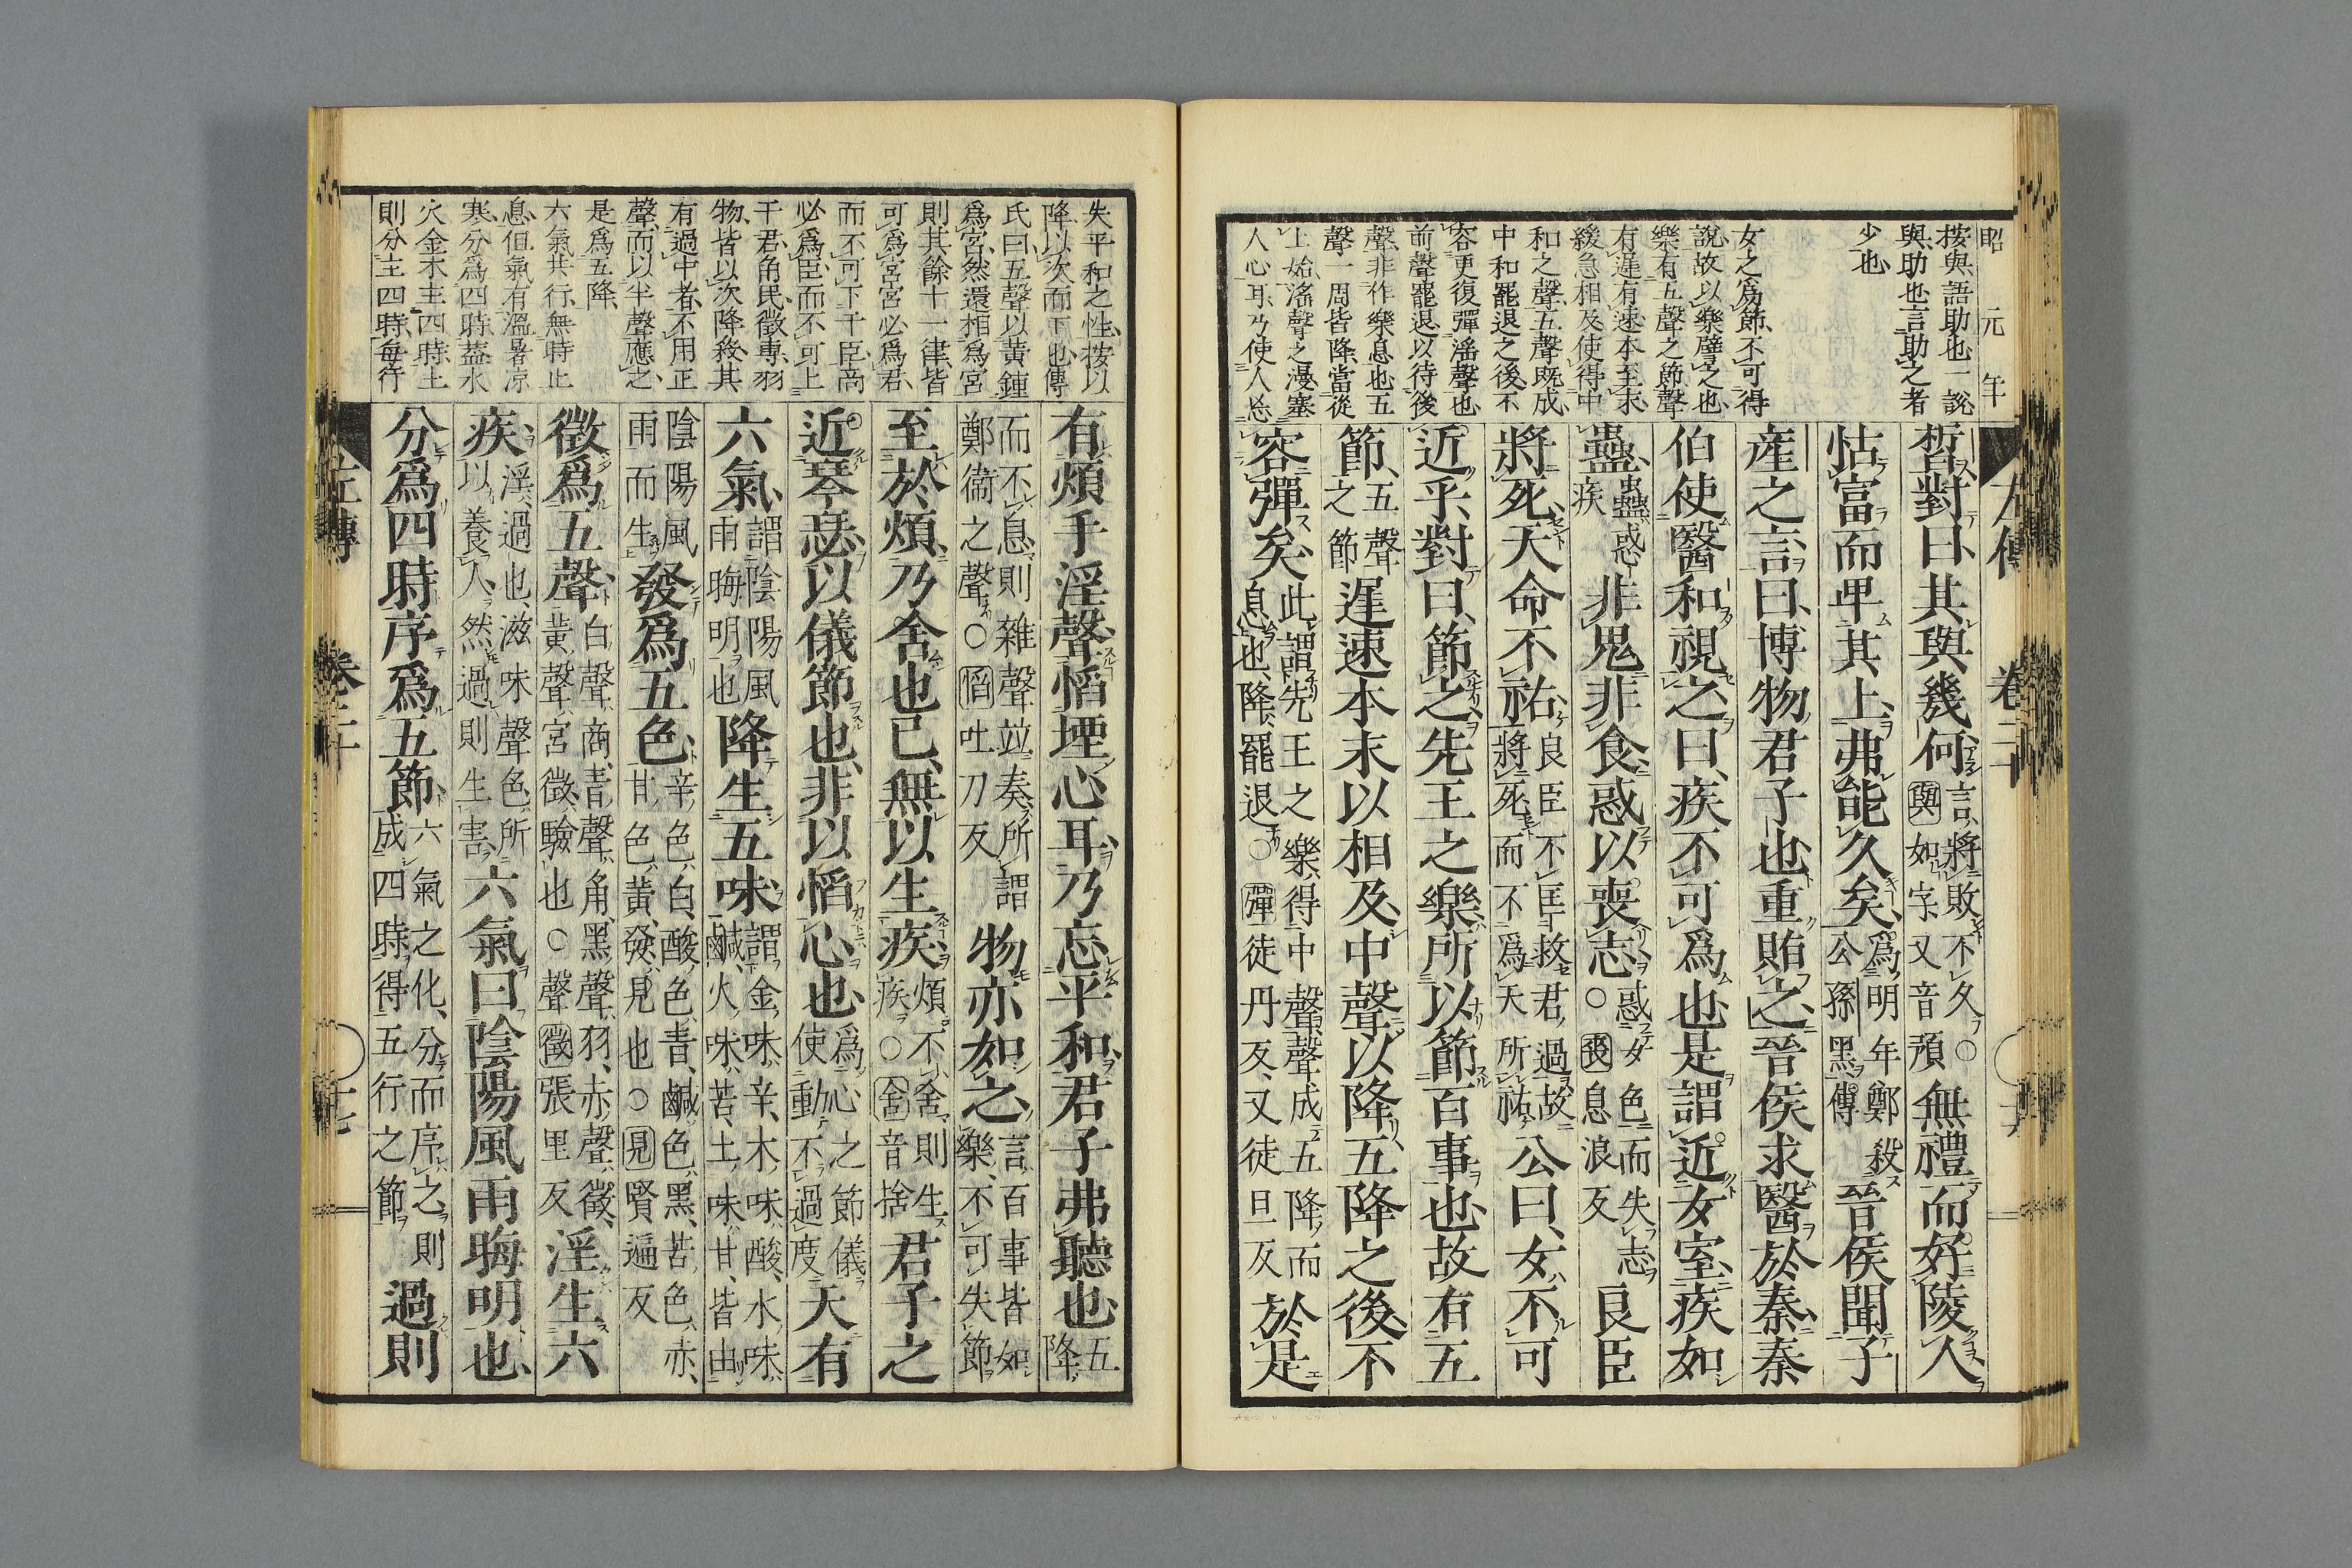 昭元年
按與語助也一說
與助也言助之者
少也
女之爲節不可得
說故以樂譬之也
樂有五聲之節聲
有遲有速本至末
緩急相及使得中
和之聲五聲既成
中和罷退之後不
容更復彈滛聲也
前聲罷退以待後
聲非作樂息也五
聲一周皆降當從
上始滛聲之漫塞
人心耳乃使人忘
左傳 卷二十
皙對曰其與幾何言將敗不久○與如字又音預無禮而好陵人
怙富而卑其上弗能久矣爲明年鄭殺公孫黑傳晉侯聞子
産之言曰博物君子也重賄之晉侯求醫於秦秦
伯使醫和視之曰疾不可爲也是謂近女室疾如
蠱蠱惑疾非鬼非食惑以喪志惑女色而失志○喪息浪反良臣
將死天命不祐良臣不匡救君過故將死而不爲天所祐公曰女不可
近乎對曰節之先王之樂所以節百事也故有五
節五聲之節遲速本末以相及中聲以降五降之後不
容彈矣此謂先王之樂得中聲聲成五降而息也降罷退○彈徒丹反又徒旦反於是
失平和之性按以
降以次而下也傳
氏曰五聲以黃鍾
爲宮然還相爲宮
則其餘十一律皆
可爲宮宮必爲君
而不可下干臣商
必爲臣而不可上
干君角民徵專羽
物皆以次降殺其
有過中者不用正
聲而以半聲應之
是爲五降
六氣共行無時止
息但氣有溫暑凉
寒分爲四時葢水
火金木主四時土
則分主四時每行
有煩手淫聲慆堙心耳乃忘平和君子弗聽也五降
而不息則雜聲竝奏所謂鄭衞之聲○慆吐刀反物亦如之言百事皆如樂不可失節
至於煩乃舍也已無以生疾煩不舍則生疾○舍音捨君子之
近琴瑟以儀節也非以慆心也爲心之節儀使動不過度天有
六氣謂陰陽風雨晦明也降生五味謂金味辛木味酸水味鹹火味苦土味甘皆由
陰陽風雨而生發爲五色辛色白酸色青鹹色黑苦色赤甘色黃發見也○見賢遍反
徵爲五聲白聲商青聲角黑聲羽赤聲徵黃聲宮徵驗也○聲徵張里反淫生六
疾淫過也滋味聲色所以養人然過則生害六氣曰陰陽風雨晦明也
分爲四時序爲五節六氣之化分而序之則成四時得五行之節過則
左傳 卷二十 十七